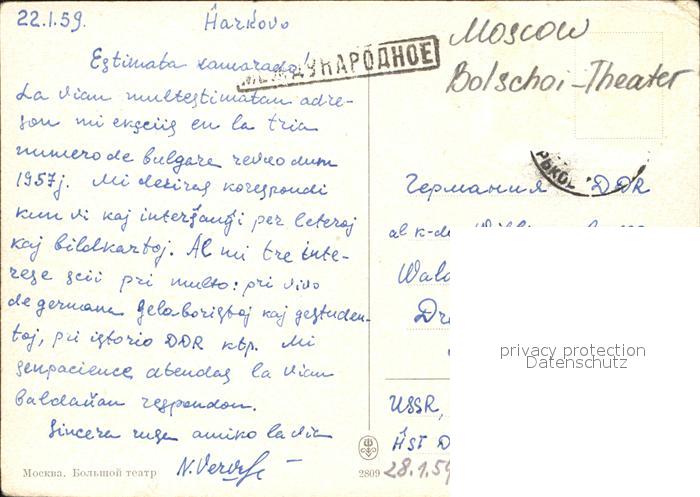 22.1.59. Ĥarkovo
Estimata kamarado!
МЕЖДУНАРОДНОЕ
Moscow
Bolschoi-Theater
La vian multestimatan adre-
son mi eksciis en la tria
numero de bulgara revuo dum
1957j. Mi deziras korespondi
kun vi kaj interŝanĝi per leteroj
kaj bildkartoj. Al mi tre inte-
rese scii pri multo: pri vivo
de germana gelaboristoj kaj gestuden-
toj, pri istorio DDR ktp. Mi
senpacience atendas la vian
baldaŭan respondon.
Sincera rusa amiko la via
Германия DDR
al k-do
USSR,
Ĥst D
28.1.59
Москва. Большой театр
2809
privacy protection
Datenschutz